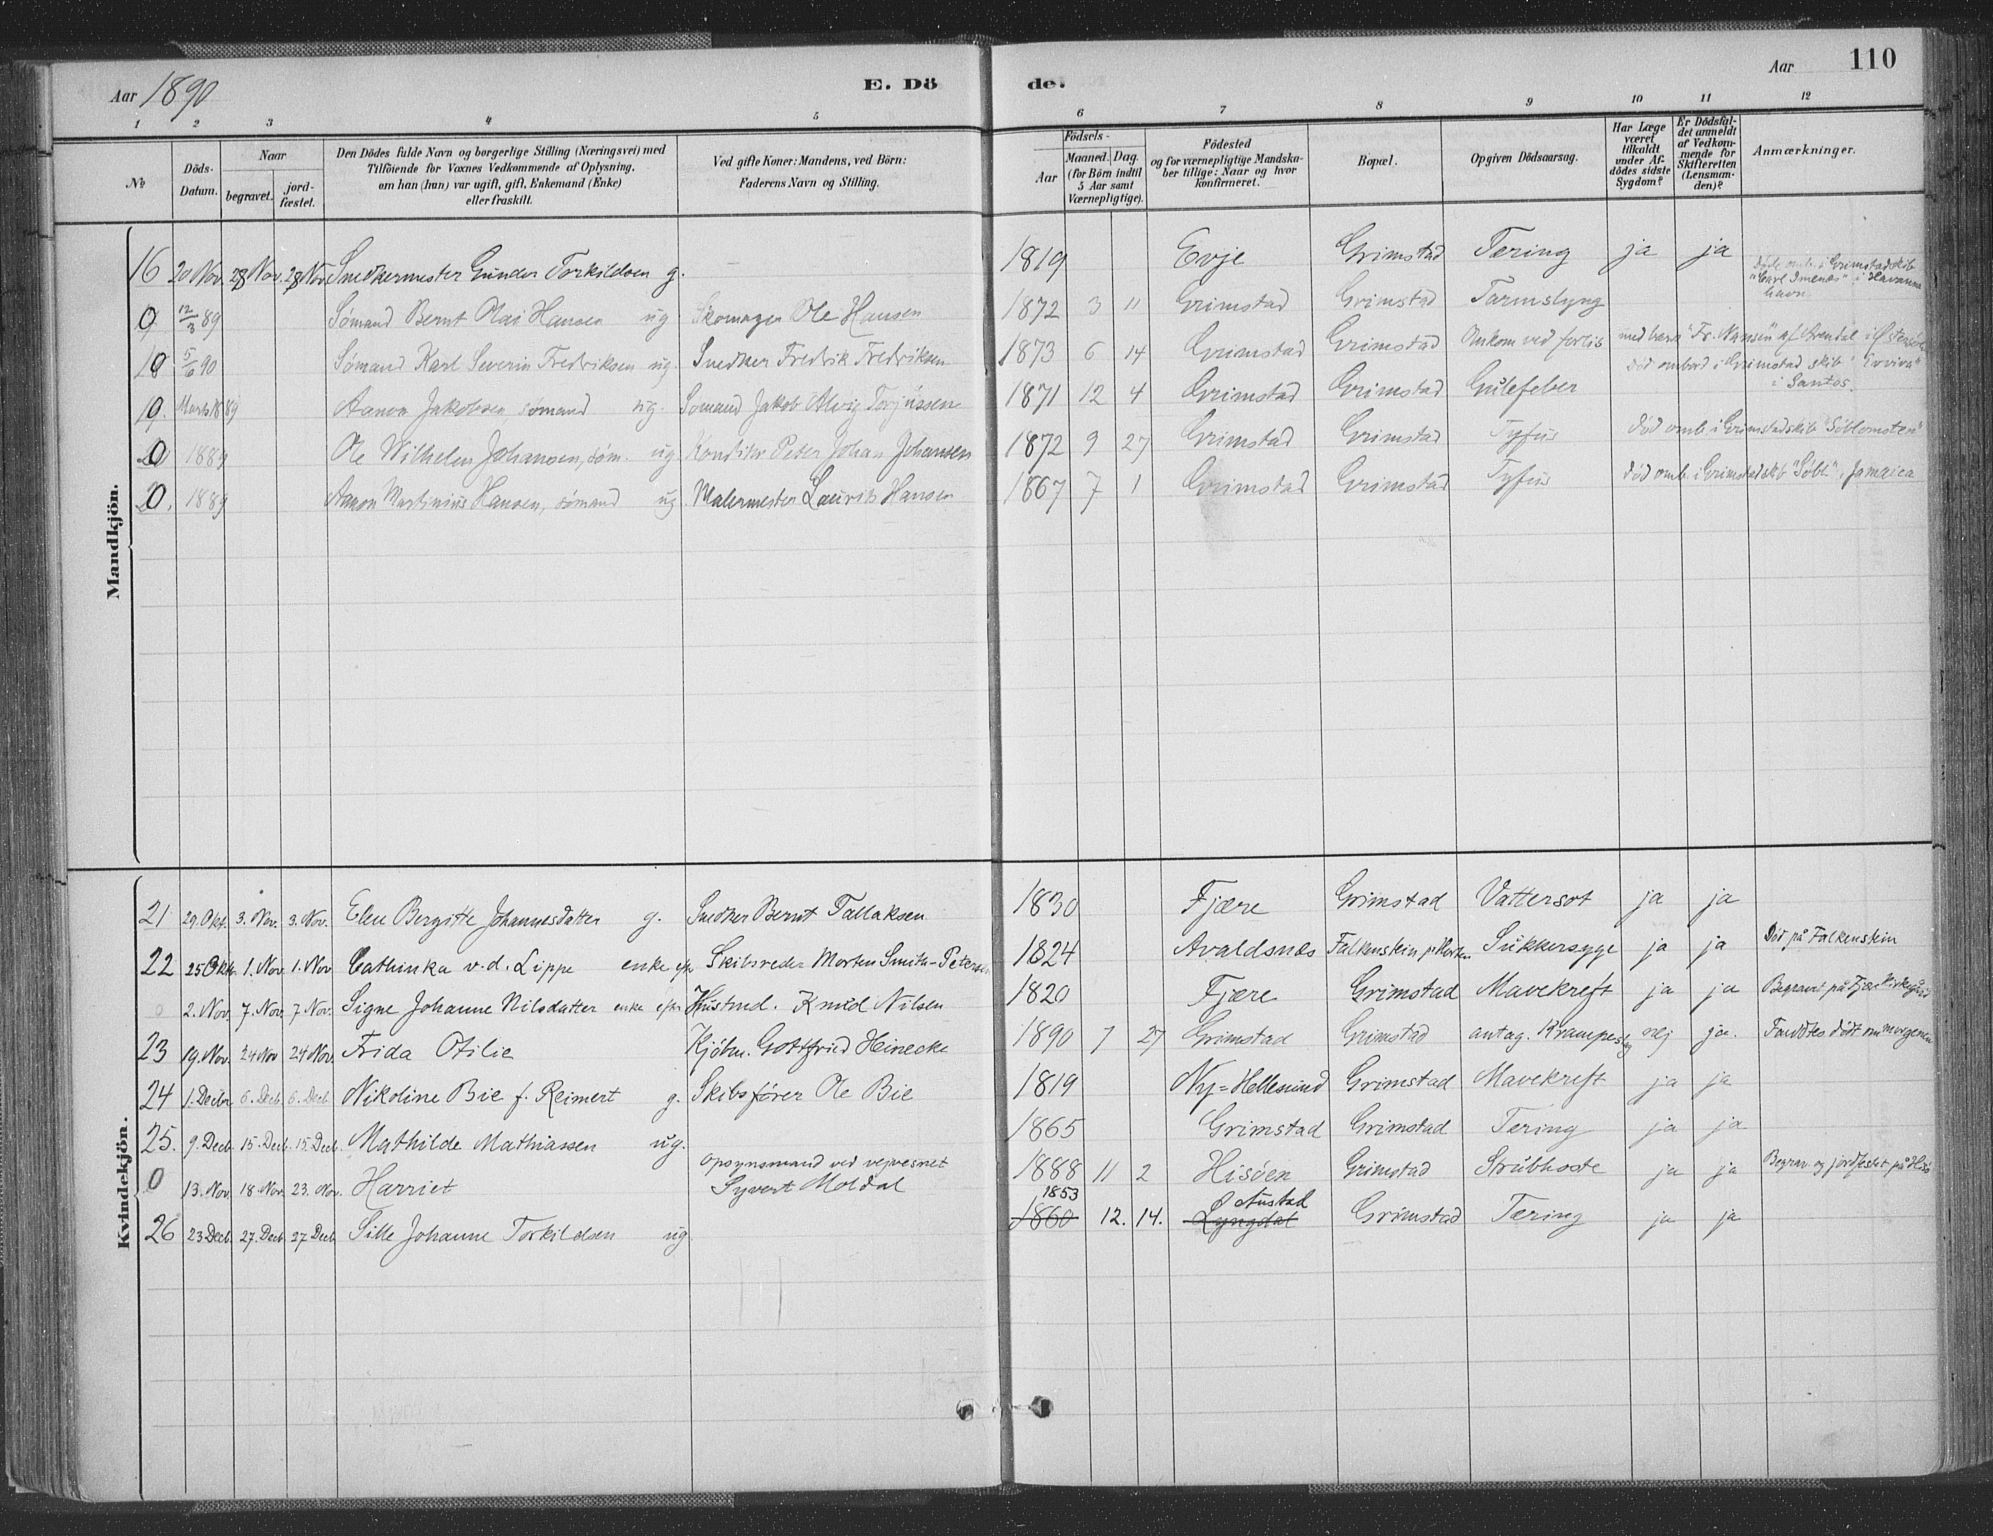 Aar 1890 E. Dö de. Aar 110
1 2 3 4 5 6 7 8 9 10 11 12
No
Döds-Datum.
Naar
begravet.
jord-fæstet.
Den Dödes fulde Navn og borgerlige Stilling (Næringsvei) med
Tilföiende for Voxnes Vedkommende af Oplysning,
om han (hun) var ugift, gift, Enkemand (Enke)
eller fraskilt.
Ved gifte Koner: Mandens, ved Börn:
Faderens Navn og Stilling.
Födsels-
Aar
Maaned. Dag.
(for Börn indtil
5 Aar samt
Værnepligtige).
Födested
og for værnepligtige Mandska-
ber tillige: Naar og hvor
konfirmeret.
Bopæl.
Opgiven Dödsaarsag.
Har Læge
været
tilkaldt
under Af-
dödes sidste
Sygdom?
Er Dödsfal-
det anmeldt
af Vedkom-
mende for
Skifteretten
(Lensman-
den)?
Anmærkninger.
Mandkjön.
16 20 Nov. 28 Nov. 28 Nov. Snedkermester Gunder Torkildsen g. — 1819 Evje Grimstad Tæring ja ja
0 12/3 89 Sømand Bernt Olai Hansen ug. Skomager Ole Hansen 1872 3 11 Grimstad Grimstad Tarmslyng Døde omb. i Grimstadskib "Carl" i Havanna havn
0 5/6 90 Sømand Karl Severin Fredriksen ug. Snedker Fredrik Fredriksen 1873 6 14 Grimstad Grimstad Omkom ved forlis med bark "Fr. Nansen" af Arendal i
0 Marts 1889 Aanon Jakobsen sømand ug. Sømand Jakob Alvig Torjussen 1871 12 4 Grimstad Grimstad Gulefeber død ombord i Grimstad skib i Santos.
0 1889 Ole Wilhelm Johansen, søm. ug. Peter Johan Johansen 1872 9 27 Grimstad Grimstad Tyfus død omb. i Grimstadskib "Søblomsten"
0 1889 Aanon Martinius Hansen, sømand ug. Malermester Laurits Hansen 1867 7 1 Grimstad Grimstad Tyfus død omb. i Grimstadskib Jamaica
Kvindekjön.
21 29. Okt. 3. Nov. 3. Nov. Elen Bergitte Johannesdatter g. Snedker Bernt Tallaksen 1830 Fjære Grimstad Vattersot ja ja
22 25 Oktb 1. Nov. 1. Nov Cathinka v. d. Lippe enke efr Skibsreder Morten Smith-Petersen 1824 Avaldsnes Falkensten p. Horten Sukkersyge ja ja Død på Falkensten
0 2. Nov. 7. Nov. 7 Nov. Signe Johanne Nilsdatter enke efter Hustmd. Knud Nilsen 1820 Fjære Grimstad Mavekreft ja ja Begravet på Fjære Kirkegård
23 19. Nov. 24 Nov 24 Nov. Frida Otilie Kjøbm. Gottfried Heinecke 1890 7 27 Grimstad Grimstad antag. Krampeslag nej ja. Fandtes død om morgenen
24 1. Decbr 6. Decb 6. Decb Nikoline Bie f. Reimert g. Skibsfører Ole Bie 1819 Ny=Hellesund Grimstad Mavekreft ja ja
25. 9. Decb. 15. Decb. 15. Decb. Mathilde Mathiassen ug. 1865 Grimstad Grimstad Tæring ja ja
0 13. Nov. 18. Nov. 23. Nov. Harriet Opsynsmand ved vejvesnet Syvert Moldal 1888 11 2 Hisöen Grimstad Strubhoste ja ja Begrav. og jordfæstet på Hisö
26 23 Decb. 27. Decb 27 Decb. Sille Johanne Torkildsen ug. 1853 1860 12. 14. Lyngdal Grimstad Tæring ja ja